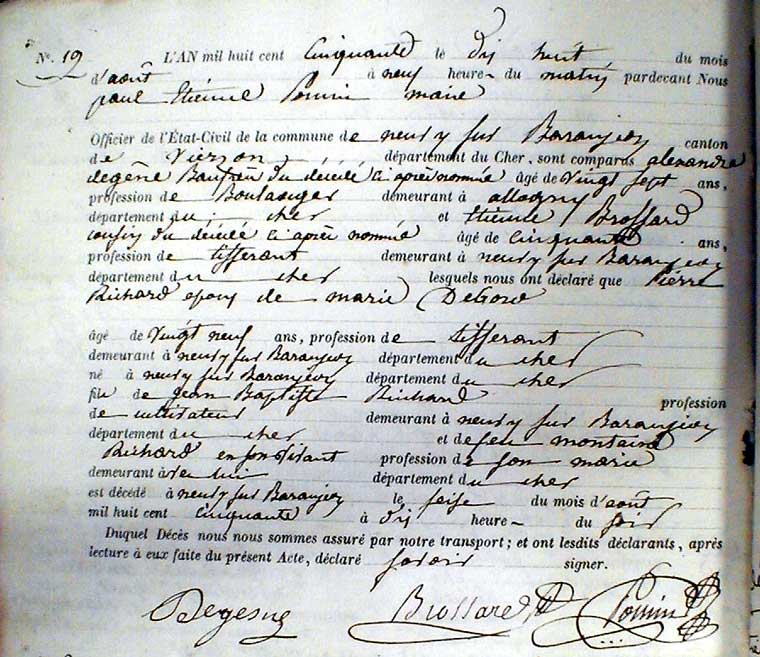 N.º 19 L'AN mil huit cent Cinquante le dix huit du mois
d'août à neuf heure du matin pardevant Nous
paul Etienne maire
Officier de l'État-Civil de la commune de neuvy sur Baranjon canton
de Vierzon département du Cher, sont comparus alexandre
degêne du décédé ci après nommé âgé de vingt sept ans,
profession de Boulanger demeurant à allogny
département du cher et Etienne Brossard
cousin du décédé ci après nommé âgé de cinquante ans,
profession de tisserant demeurant à neuvy sur Baranjon
département du cher lesquels nous ont déclaré que Pierre
Richard epoux de marie
âgé de vingt neuf ans, profession de tisserant
demeurant à neuvy sur Baranjon département du cher
né à neuvy sur Baranjon département du cher
fils de jean Baptiste Richard profession
de cultivateur demeurant à neuvy sur Baranjon
département du cher et de feu montaine
Richard en son vivant profession de son marie
demeurant à département du cher
est décédé à neuvy sur Baranjon le seise du mois d'août
mil huit cent cinquante à dix heure du soir
Duquel Décès nous nous sommes assuré par notre transport; et ont lesdits déclarants, après
lecture à eux faite du présent Acte, déclaré savoir signer.
Degesne Brossard